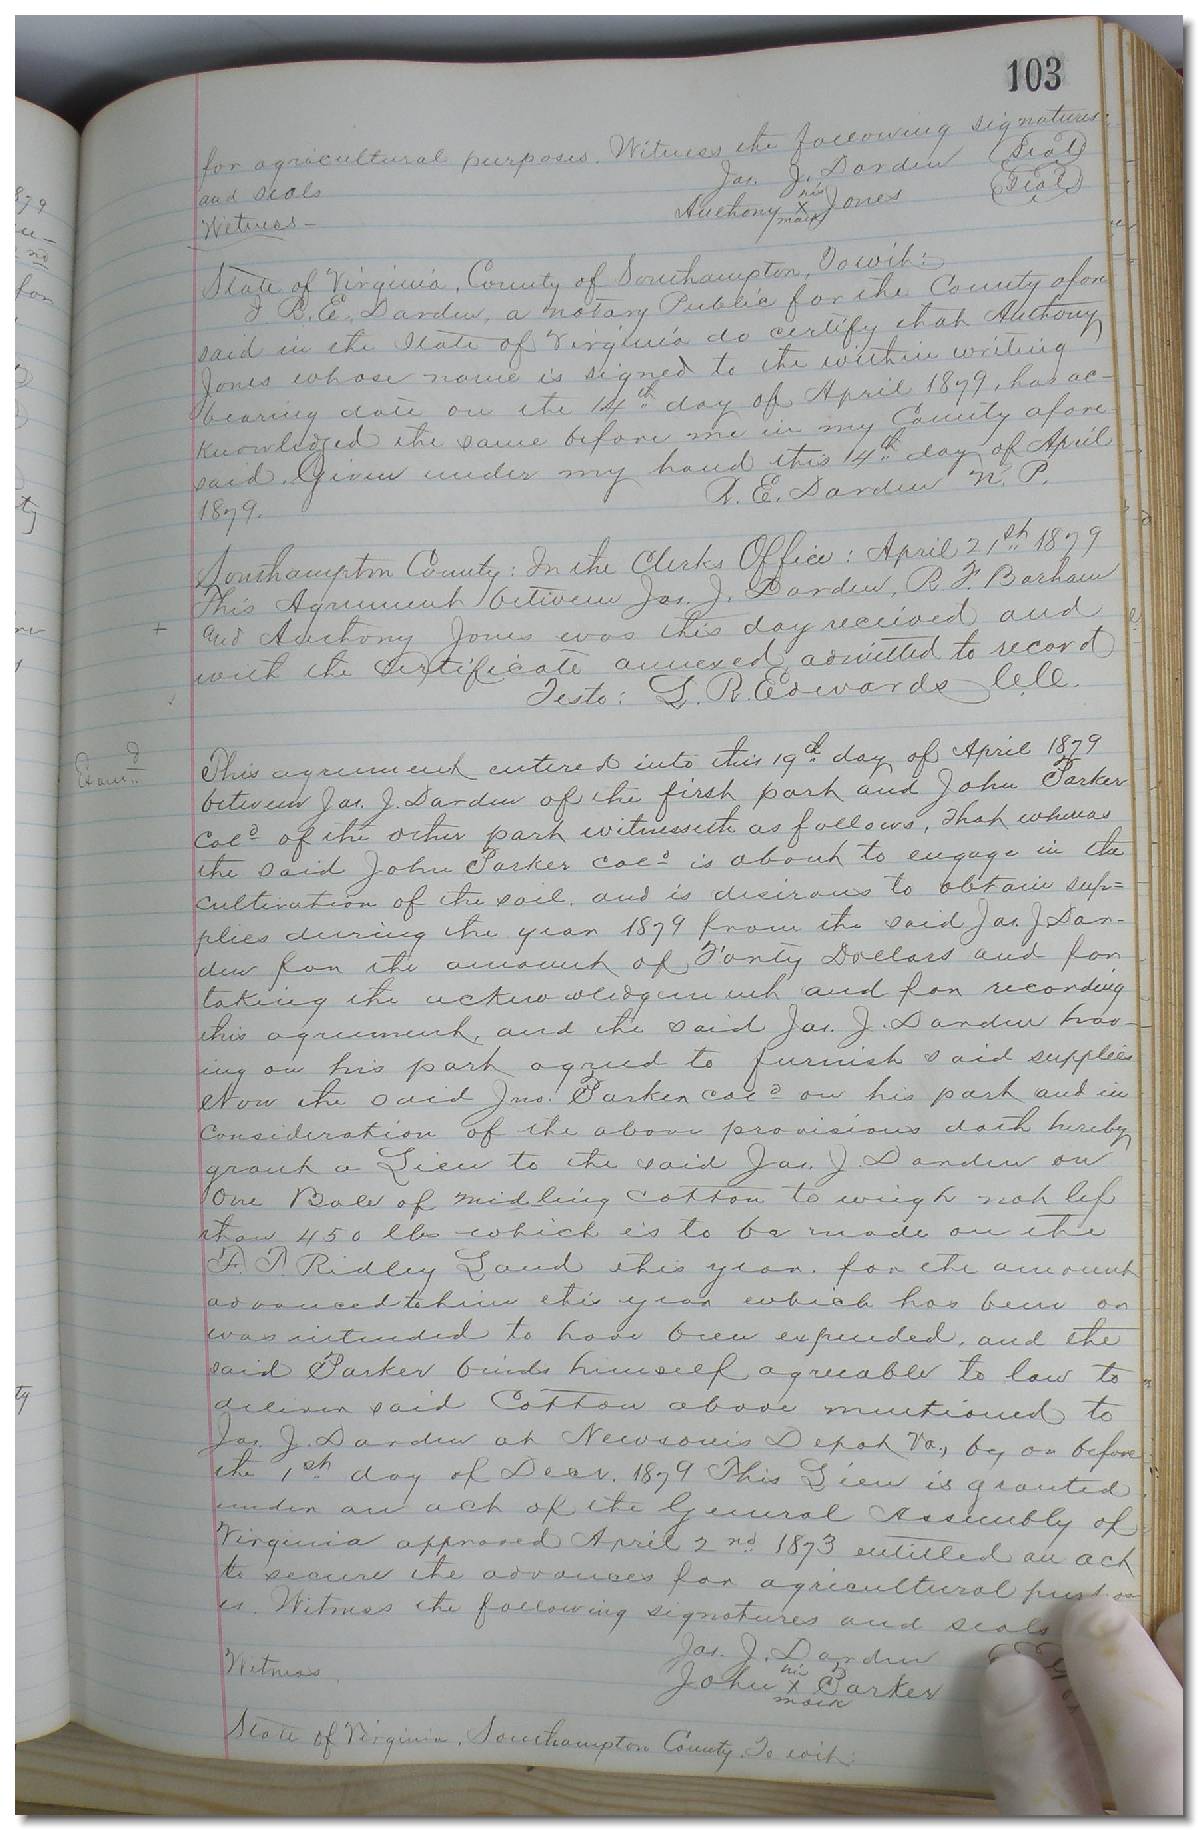 103
for agricultural purposes. Witness the following signatures
and seals Jas. J. Darden (Seal)
Witness - Anthony his X mark Jones (Seal)
State of Virginia, County of Southampton, To wit:
I R. E. Darden, a notary Public for the County afore
said in the State of Virginia do certify that Anthony
Jones whose name is signed to the within writing
bearing date on the 14th day of April 1879, has ac-
knowledged the same before me in my County afore
said. Given under my hand this 4th day of April
1879. R. E. Darden N. P.
Southampton County: In the Clerks Office: April 21st 1879
This Agreement between Jas. J. Darden, R. F. Barham
+ and Anthony Jones was this day received and
with the Certificate annexed, admitted to record
Teste: L. R. Edwards C.C.
Examd This agreement entered into this 19th day of April 1879
between Jas. J. Darden of the first part and John Parker
Cold of the other part witnesseth as follows, That whereas
the said John Parker cold is about to engage in the
cultivation of the soil, and is disirous to obtain sup=
plies during the year 1879 from the said Jas. J Dar-
den for the amount of Forty Dollars and for
taking the acknowledgement and for recording
this agreement, and the said Jas. J. Darden hav-
ing on his part agreed to furnish said supplies
Now the said Jno. Parker cold on his part and in
consideration of the above provisions doth hereby
grant a Lien to the said Jas. J. Darden on
One Bale of midling cotton to weigh not less
than 450 lbs which is to be made on the
F. T. Ridley Land this year. for the amount
advanced to him this year which has been or
was intended to have been expended, and the
said Parker binds himself agreeable to law to
deliver said Cotton above mentioned to
Jas. J. Darden at Newsoms Depot Va., by or before
the 1st day of Decr. 1879 This Lien is granted
under an act of the General Assembly of
Virginia approved April 2nd 1873 entitled an act
to secure the advances for agricultural purpos
es. Witness the following signatures and seals
Jas. J. Darden
Witness John his X mark Parker
State of Virginia, Southampton County, To wit: